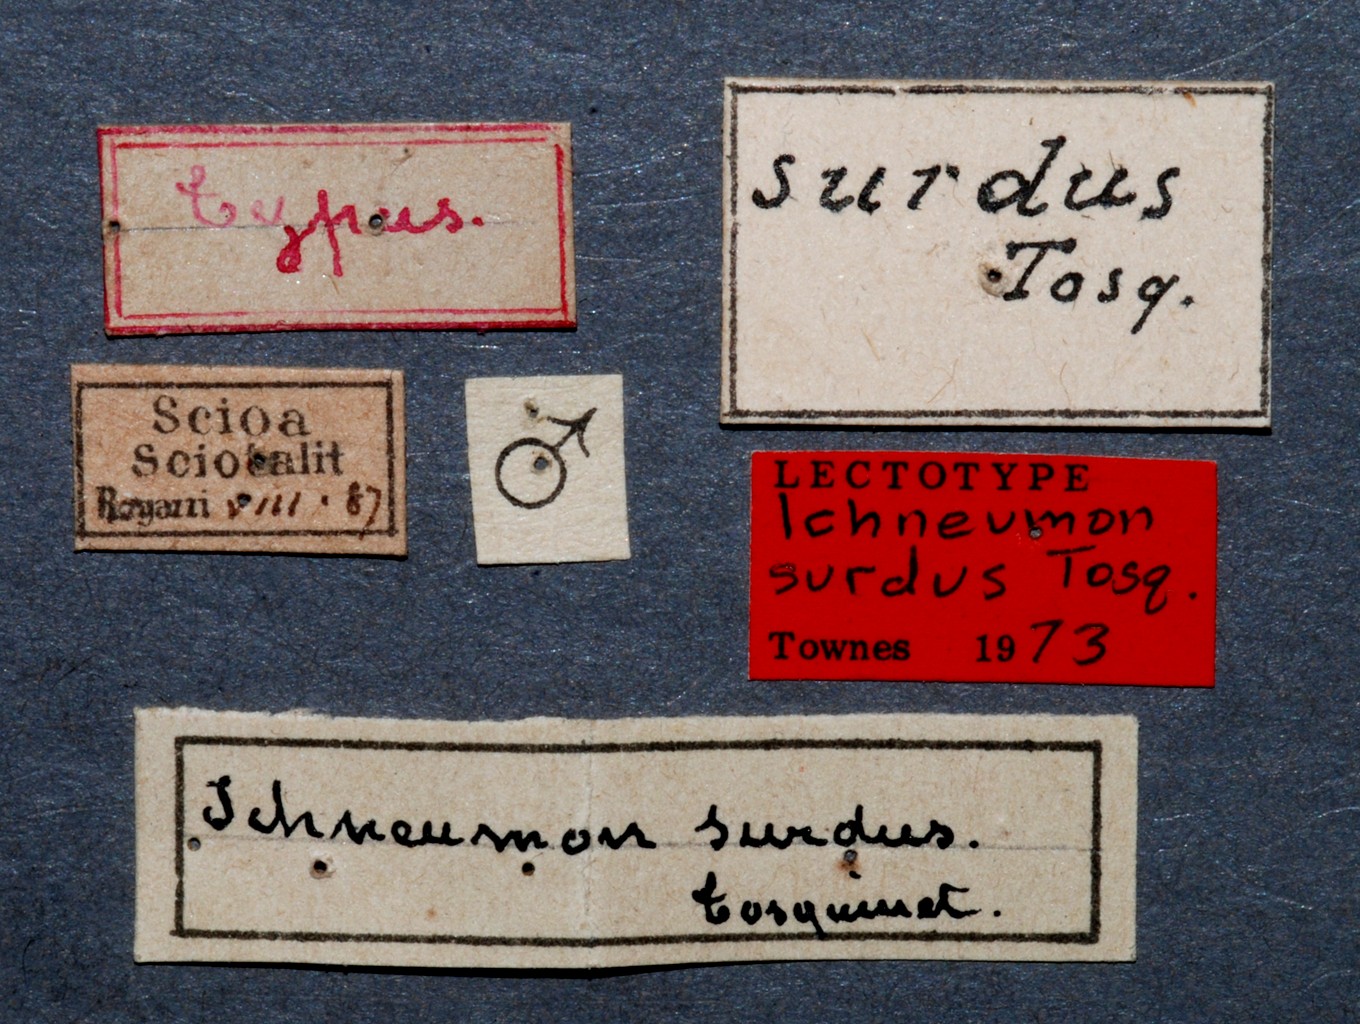 typus.
surdus
Tosq.
Scioa
Sciotalit
Ragazzi VIII. 87
♂
LECTOTYPE
Ichneumon
surdus Tosq.
Townes 1973
Ichneumon surdus.
tosquinet.